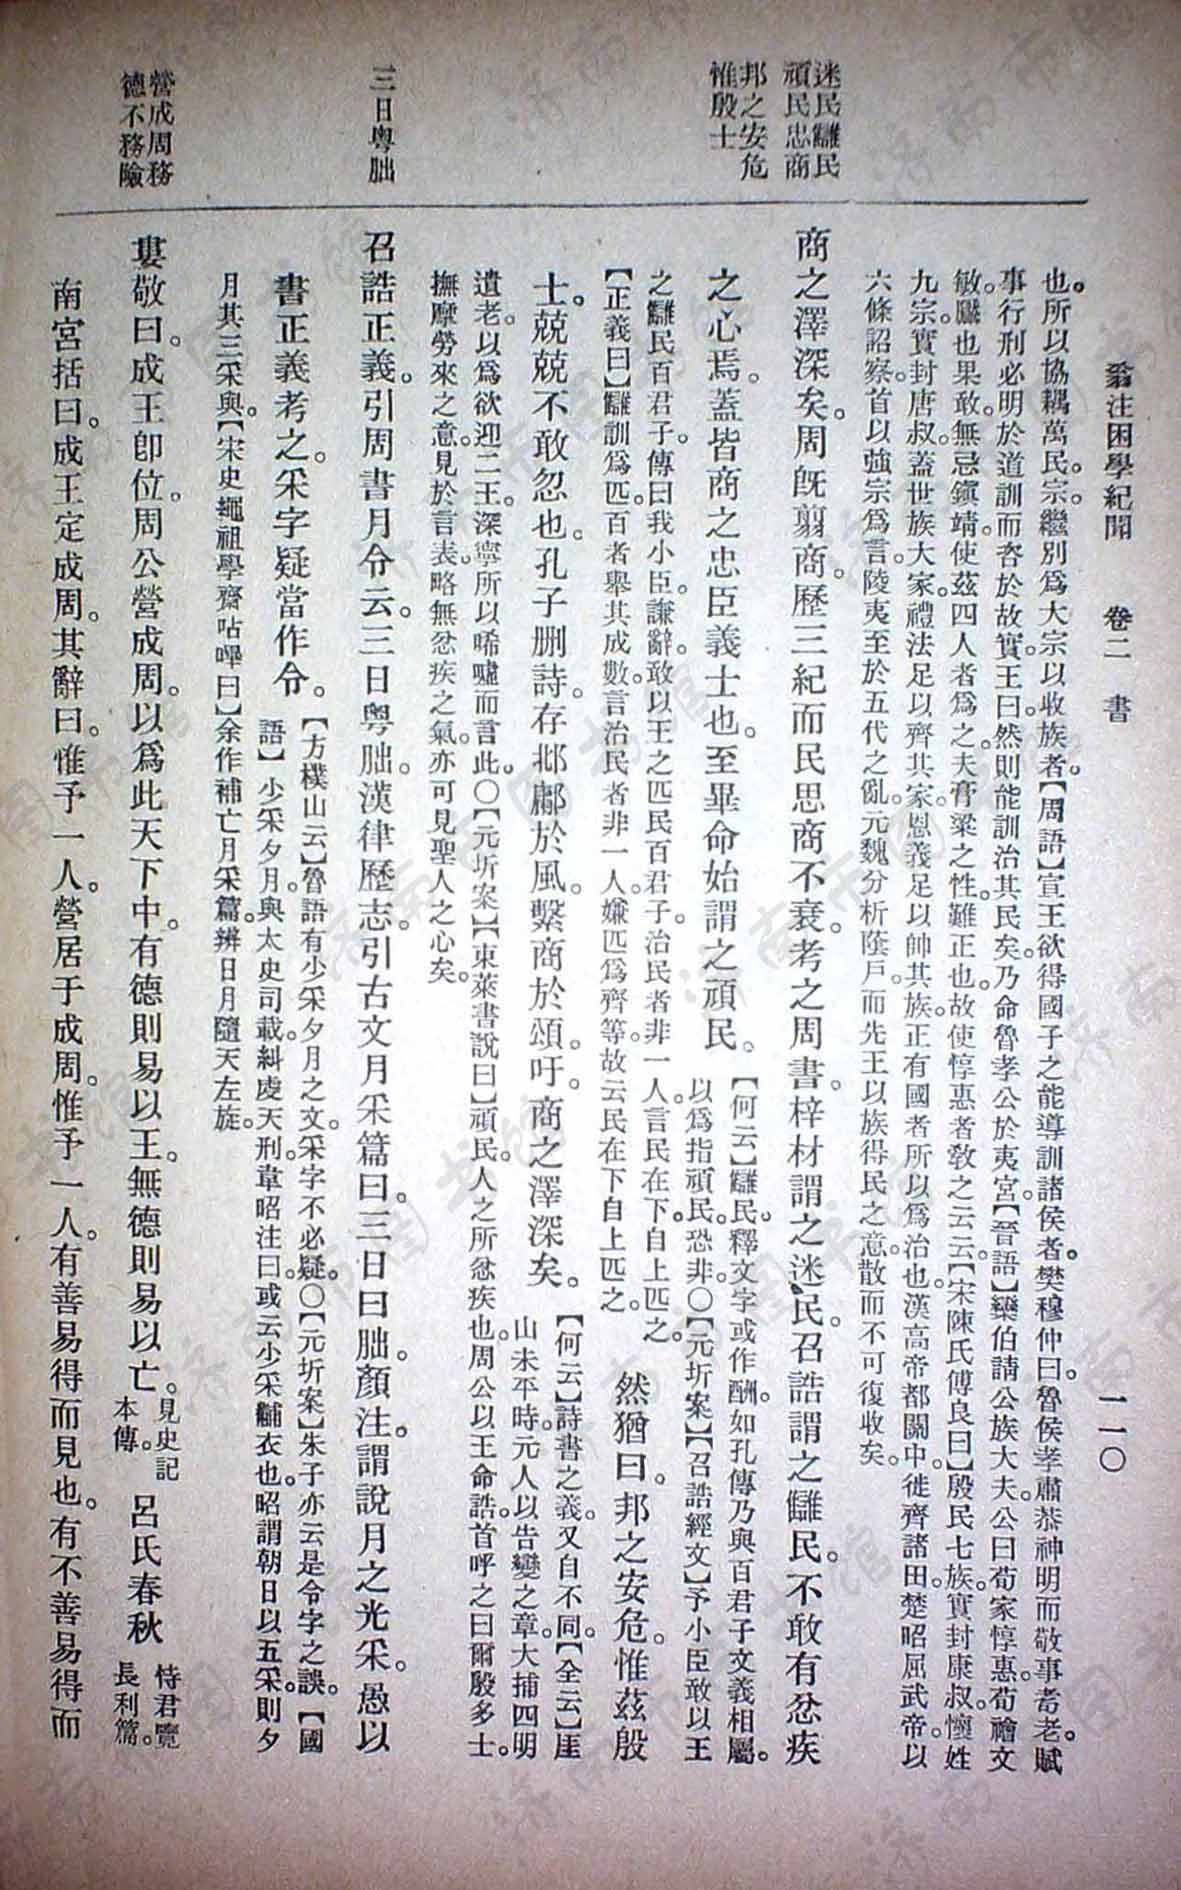 翁注困學紀聞　卷二　書　一一〇
迷民讎民
頑民忠商
邦之安危
惟殷士
三日粵朏
營成周務
德不務險
也。所以協耦萬民。宗。繼別爲大宗以收族者。【周語】宣王欲得國子之能導訓諸侯者。樊穆仲曰。魯侯孝肅恭神明而敬事耇老。賦
事行刑必明於道訓而咨於故實。王曰。然則能訓治其民矣。乃命魯孝公於夷宮。【晉語】欒伯請公族大夫。公曰荀家惇惠。荀檜文
敏。黶也果敢。無忌鎭靖。使茲四人者爲之。夫膏粱之性。難正也。故使惇惠者敎之云云。【宋陳氏傅良曰】殷民七族。實封康叔。懷姓
九宗。實封唐叔。蓋世族大家。禮法足以齊其家。恩義足以帥其族。正有國者所以爲治也。漢高帝都關中。徙齊諸田。楚昭屈武帝。以
六條詔察。首以強宗爲言。陵夷至於五代之亂。元魏分析蔭戶。而先王以族得民之意。散而不可復收矣。
商之澤深矣。周旣翦商。歷三紀而民思商不衰。考之周書。梓材謂之迷民。召誥謂之讎民。不敢有忿疾
之心焉。蓋皆商之忠臣義士也。至畢命始謂之頑民。【何云】讎民。釋文字或作酬。如孔傳乃與百君子文義相屬。
以爲指頑民。恐非。〇【元圻案】【召誥經文】予小臣敢以王
之讎民百君子。傳曰我小臣。謙辭。敢以王之匹民百君子。治民者非一人。言民在下。自上匹之。
【正義曰】讎訓爲匹。百者舉其成數。言治民者非一人。嫌匹爲齊等。故云民在下自上匹之。
然猶曰。邦之安危。惟茲殷
士。兢兢不敢忽也。孔子刪詩。存邶鄘於風。繫商於頌。吁。商之澤深矣。【何云】詩書之義。又自不同。【全云】厓
山未平時。元人以告變之章。大捕四明
遺老。以爲欲迎二王。深寧所以唏噓而言此。〇【元圻案】【東萊書說曰】頑民。人之所忿疾也。周公以王命誥。首呼之曰爾殷多士。
撫摩勞來之意。見於言表。略無忿疾之氣。亦可見聖人之心矣。
召誥正義。引周書月令云。三日粵朏。漢律歷志。引古文月采篇曰。三日曰朏。顏注。謂說月之光采。愚以
書正義考之。采字疑當作令。【方樸山云】魯語有少采夕月之文。采字不必疑。〇【元圻案】朱子亦云是令字之誤。【國
語】少采夕月。與太史司載。糾虔天刑。韋昭注曰。或云少采黼衣也。昭謂朝日以五采。則夕
月其三采與。【宋史繩祖學齋呫嗶曰】余作補亡月采篇。辨日月隨天左旋。
婁敬曰。成王卽位。周公營成周。以爲此天下中。有德則易以王。無德則易以亡。見史記
本傳。呂氏春秋恃君覽
長利篇。
南宮括曰。成王定成周。其辭曰。惟予一人。營居于成周。惟予一人。有善易得而見也。有不善易得而